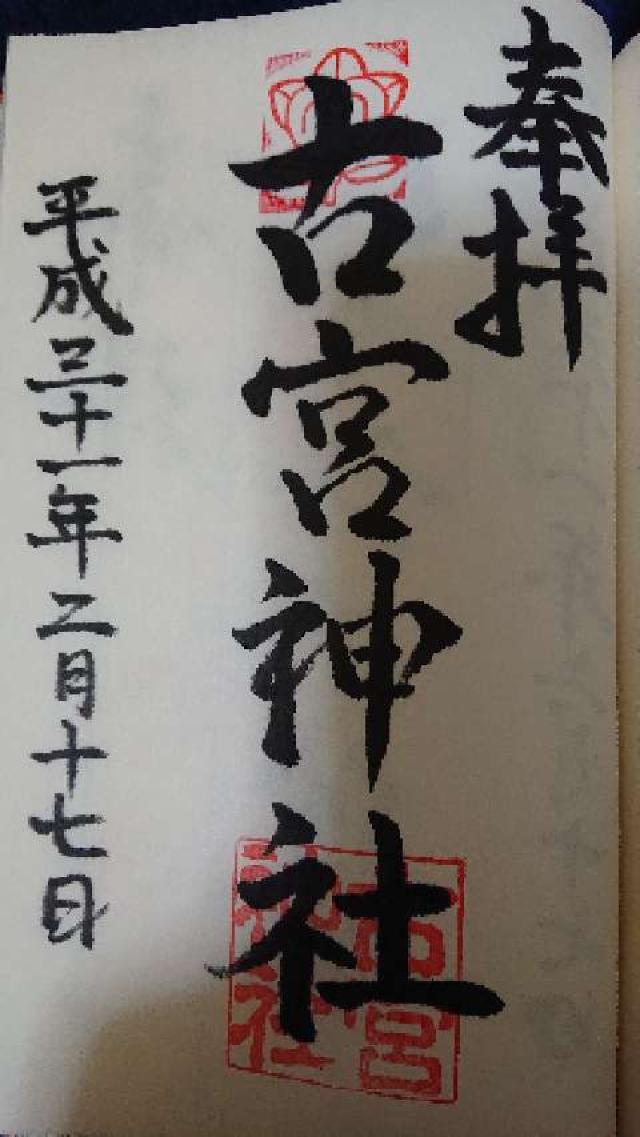 奉拝
古宮神社
平成三十一年二月十七日
古宮
神社